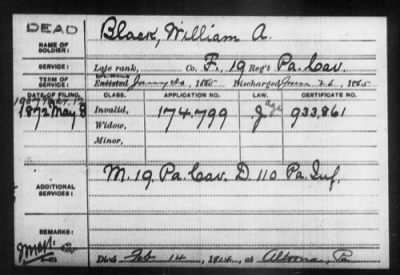 DEAD
NAME OF SOLDIER: Black, William A.
SERVICE: Late rank, Co. F, 19 Reg't Pa. Cav.
TERM OF SERVICE: Enlisted 1865 Discharged June 1865
DATE OF FILING. CLASS. APPLICATION NO. LAW. CERTIFICATE NO.
1907 Mar. 12
1872 May 8 Invalid, 174,799 933,861
Widow,
Minor,
ADDITIONAL SERVICES: M. 19. Pa. Cav. D 110 Pa. Inf.
REMARKS:
Died Feb 14, 1914, at Altoona, Pa